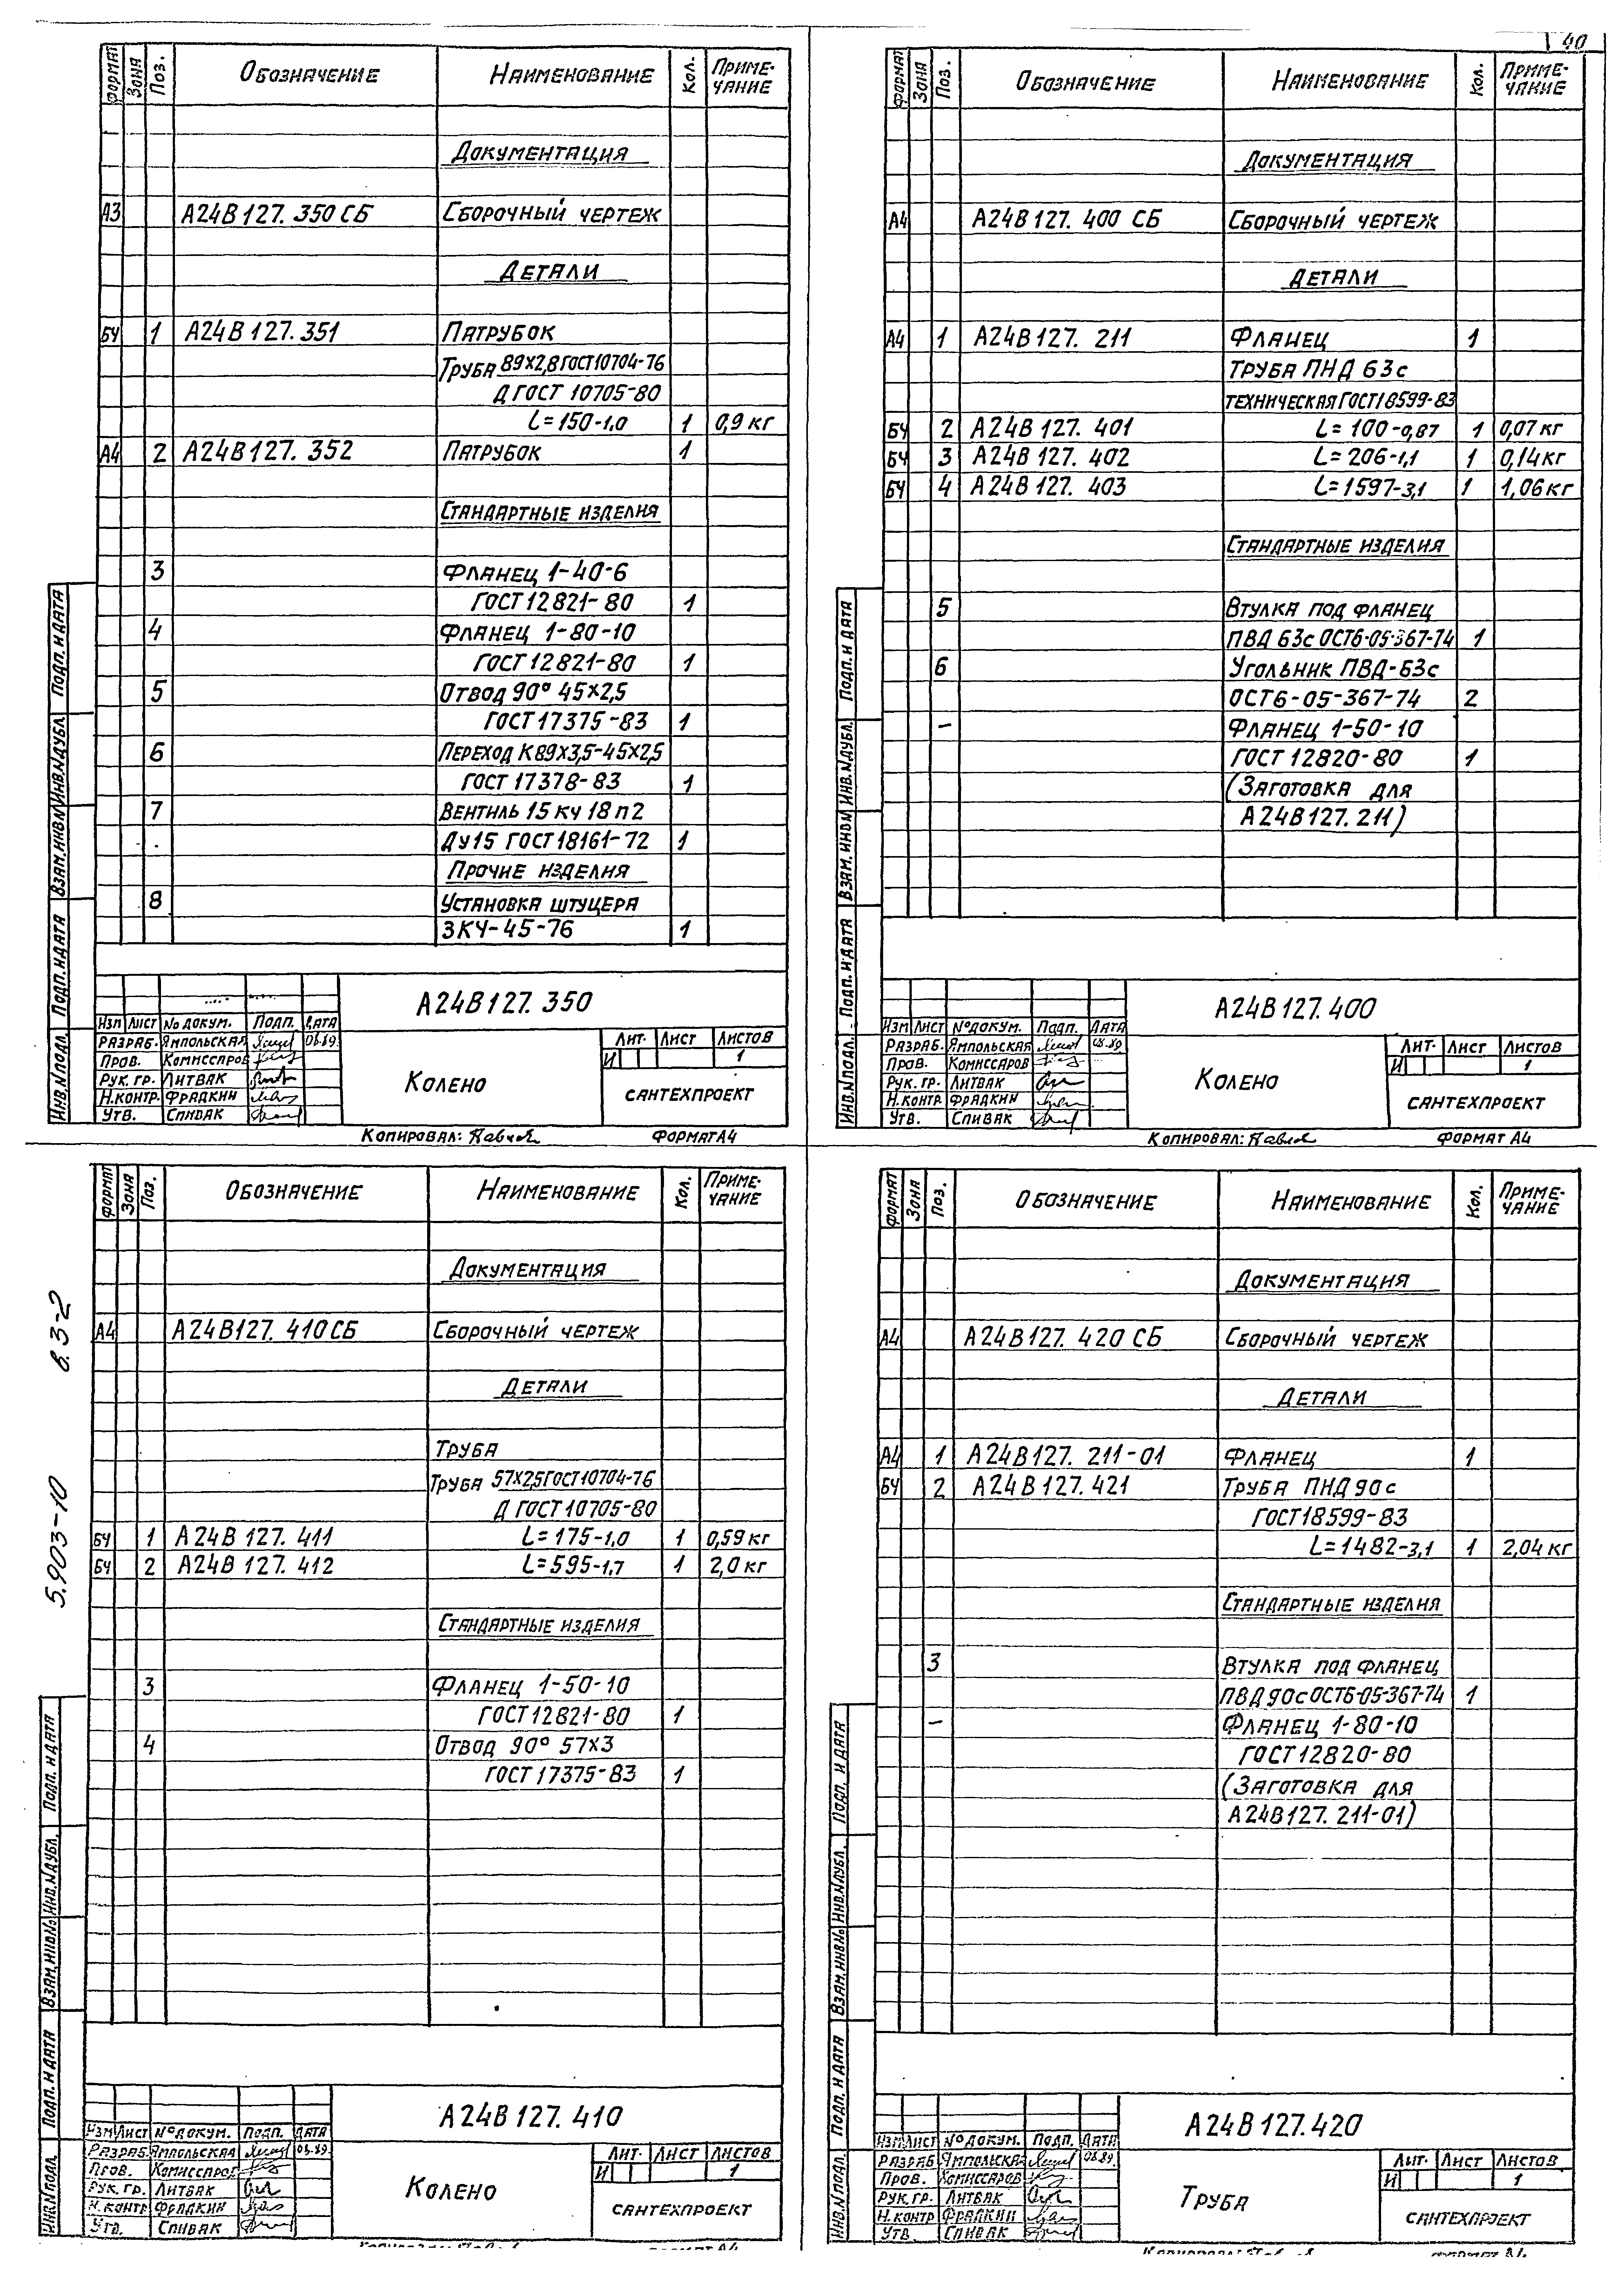 40
ФОРМАТ ЗОНА ПОЗ. ОБОЗНАЧЕНИЕ НАИМЕНОВАНИЕ КОЛ. ПРИМЕ-
ЧАНИЕ
ДОКУМЕНТАЦИЯ
А3 А24В127.350 СБ СБОРОЧНЫЙ ЧЕРТЕЖ
ДЕТАЛИ
БЧ 1 А24В127.351 ПАТРУБОК
ТРУБА 89х2,8 ГОСТ10704-76
Д ГОСТ 10705-80
L=150-1,0 1 0,9 кг
А4 2 А24В127.352 ПАТРУБОК 1
СТАНДАРТНЫЕ ИЗДЕЛИЯ
3 ФЛАНЕЦ 1-40-6
ГОСТ 12821-80 1
4 ФЛАНЕЦ 1-80-10
ГОСТ 12821-80 1
5 ОТВОД 90° 45х2,5
ГОСТ 17375-83 1
6 ПЕРЕХОД К 89х3,5-45х2,5
ГОСТ 17378-83 1
7 ВЕНТИЛЬ 15 кч 18 п2
ДУ15 ГОСТ 18161-72 1
ПРОЧИЕ ИЗДЕЛИЯ
8 УСТАНОВКА ШТУЦЕРА
ЗКЧ-45-76 1
ПОДП. И ДАТА
ИНВ.№ ДУБЛ.
ВЗАМ. ИНВ.№
ПОДП. И ДАТА
ИНВ.№ ПОДЛ.
А24В127.350
ИЗМ ЛИСТ № ДОКУМ. ПОДП. ДАТА
РАЗРАБ. ЯМПОЛЬСКАЯ 08.89
ПРОВ. КОМИССАРОВ
РУК. ГР. ЛИТВАК
Н.КОНТР. ФРАДКИН
УТВ. СПИВАК
КОЛЕНО
ЛИТ. ЛИСТ ЛИСТОВ
И 1
САНТЕХПРОЕКТ
КОПИРОВАЛ: ФОРМАТ А4
ФОРМАТ ЗОНА ПОЗ. ОБОЗНАЧЕНИЕ НАИМЕНОВАНИЕ КОЛ. ПРИМЕ-
ЧАНИЕ
ДОКУМЕНТАЦИЯ
А4 А24В127.400 СБ СБОРОЧНЫЙ ЧЕРТЕЖ
ДЕТАЛИ
А4 1 А24В127.211 ФЛАНЕЦ 1
ТРУБА ПНД 63с
ТЕХНИЧЕСКАЯ ГОСТ18599-83
БЧ 2 А24В127.401 L=100-0,87 1 0,07 кг
БЧ 3 А24В127.402 L=206-1,1 1 0,14 кг
БЧ 4 А24В127.403 L=1597-3,1 1 1,06 кг
СТАНДАРТНЫЕ ИЗДЕЛИЯ
5 ВТУЛКА ПОД ФЛАНЕЦ
ПВД 63с ОСТ6-05-367-74 1
6 УГОЛЬНИК ПВД-63с
ОСТ6-05-367-74 2
– ФЛАНЕЦ 1-50-10
ГОСТ 12820-80 1
(ЗАГОТОВКА ДЛЯ
А24В127.211)
ПОДП. И ДАТА
ИНВ.№ ДУБЛ.
ВЗАМ. ИНВ.№
ПОДП. И ДАТА
ИНВ.№ ПОДЛ.
А24В127.400
ИЗМ ЛИСТ № ДОКУМ. ПОДП. ДАТА
РАЗРАБ. ЯМПОЛЬСКАЯ 08.89
ПРОВ. КОМИССАРОВ
РУК. ГР. ЛИТВАК
Н.КОНТР. ФРАДКИН
УТВ. СПИВАК
КОЛЕНО
ЛИТ. ЛИСТ ЛИСТОВ
И 1
САНТЕХПРОЕКТ
КОПИРОВАЛ: ФОРМАТ А4
5.903-10 в.3-2
ФОРМАТ ЗОНА ПОЗ. ОБОЗНАЧЕНИЕ НАИМЕНОВАНИЕ КОЛ. ПРИМЕ-
ЧАНИЕ
ДОКУМЕНТАЦИЯ
А4 А24В127.410 СБ СБОРОЧНЫЙ ЧЕРТЕЖ
ДЕТАЛИ
ТРУБА
ТРУБА 57х2,5 ГОСТ10704-76
Д ГОСТ 10705-80
БЧ 1 А24В127.411 L=175-1,0 1 0,59 кг
БЧ 2 А24В127.412 L=595-1,7 1 2,0 кг
СТАНДАРТНЫЕ ИЗДЕЛИЯ
3 ФЛАНЕЦ 1-50-10
ГОСТ 12821-80 1
4 ОТВОД 90° 57х3
ГОСТ 17375-83 1
ПОДП. И ДАТА
ИНВ.№ ДУБЛ.
ВЗАМ. ИНВ.№
ПОДП. И ДАТА
ИНВ.№ ПОДЛ.
А24В127.410
ИЗМ ЛИСТ № ДОКУМ. ПОДП. ДАТА
РАЗРАБ. ЯМПОЛЬСКАЯ 08.89
ПРОВ. КОМИССАРОВ
РУК. ГР. ЛИТВАК
Н.КОНТР ФРАДКИН
УТВ. СПИВАК
КОЛЕНО
ЛИТ. ЛИСТ ЛИСТОВ
И 1
САНТЕХПРОЕКТ
ФОРМАТ А4
ФОРМАТ ЗОНА ПОЗ. ОБОЗНАЧЕНИЕ НАИМЕНОВАНИЕ КОЛ. ПРИМЕ-
ЧАНИЕ
ДОКУМЕНТАЦИЯ
А4 А24В127.420 СБ СБОРОЧНЫЙ ЧЕРТЕЖ
ДЕТАЛИ
А4 1 А24В127.211-01 ФЛАНЕЦ 1
БЧ 2 А24В127.421 ТРУБА ПНД 90с
ГОСТ 18599-83
L=1482-3,1 1 2,04 кг
СТАНДАРТНЫЕ ИЗДЕЛИЯ
3 ВТУЛКА ПОД ФЛАНЕЦ
ПВД 90с ОСТ6-05-367-74 1
– ФЛАНЕЦ 1-80-10
ГОСТ 12820-80
(ЗАГОТОВКА ДЛЯ
А24В127.211-01)
ПОДП. И ДАТА
ИНВ.№ ДУБЛ.
ВЗАМ. ИНВ.№
ПОДП. И ДАТА
ИНВ.№ ПОДЛ.
А24В127.420
ИЗМ ЛИСТ № ДОКУМ. ПОДП. ДАТА
РАЗРАБ ЯМПОЛЬСКАЯ 08.89
ПРОВ. КОМИССАРОВ
РУК. ГР. ЛИТВАК
Н.КОНТР ФРАДКИН
УТВ. СПИВАК
ТРУБА
ЛИТ. ЛИСТ ЛИСТОВ
И 1
САНТЕХПРОЕКТ
ФОРМАТ А4